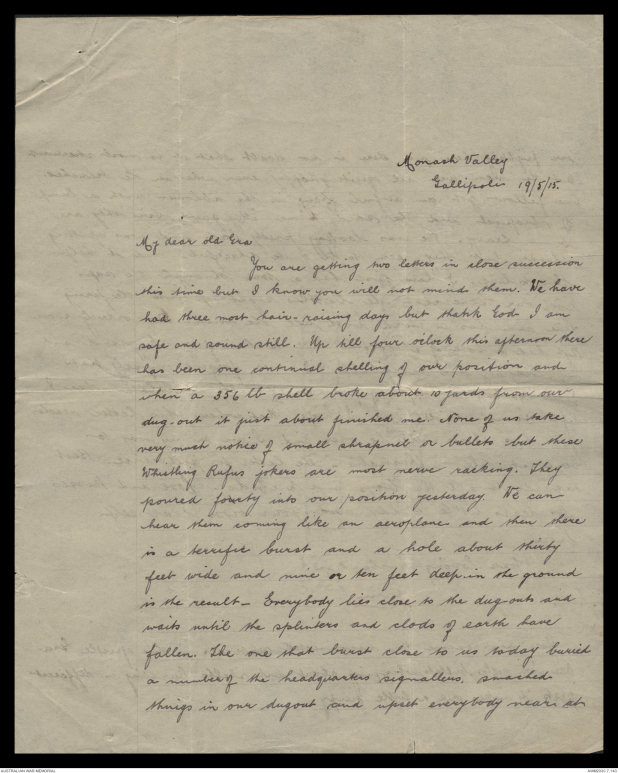 Monash Valley
Gallipoli 19/5/15.
My dear old Era
You are getting two letters in close succession
this time but I know you will not mind them. We have
had three most hair-raising days but thank God I am
safe and sound still. Up till four oclock this afternoon there
has been one continual shelling of our position and
when a 356 lb shell broke about 10 yards from our
dug-out it just about finished me. None of us take
very much notice of small shrapnel or bullets but these
Whistling Rufus jokers are most nerve racking. They
poured fourty into our position yesterday. We can
hear them coming like an aeroplane and then there
is a terrific burst and a hole about thirty
feet wide and nine or ten feet deep in the ground
is the result - Everybody lies close to the dug-outs and
waits until the splinters and clods of earth have
fallen. The one that burst close to us today buried
a number of the headquarters signallers, smashed
things in our dugout and upset everybody near at
AUSTRALIAN WAR MEMORIAL